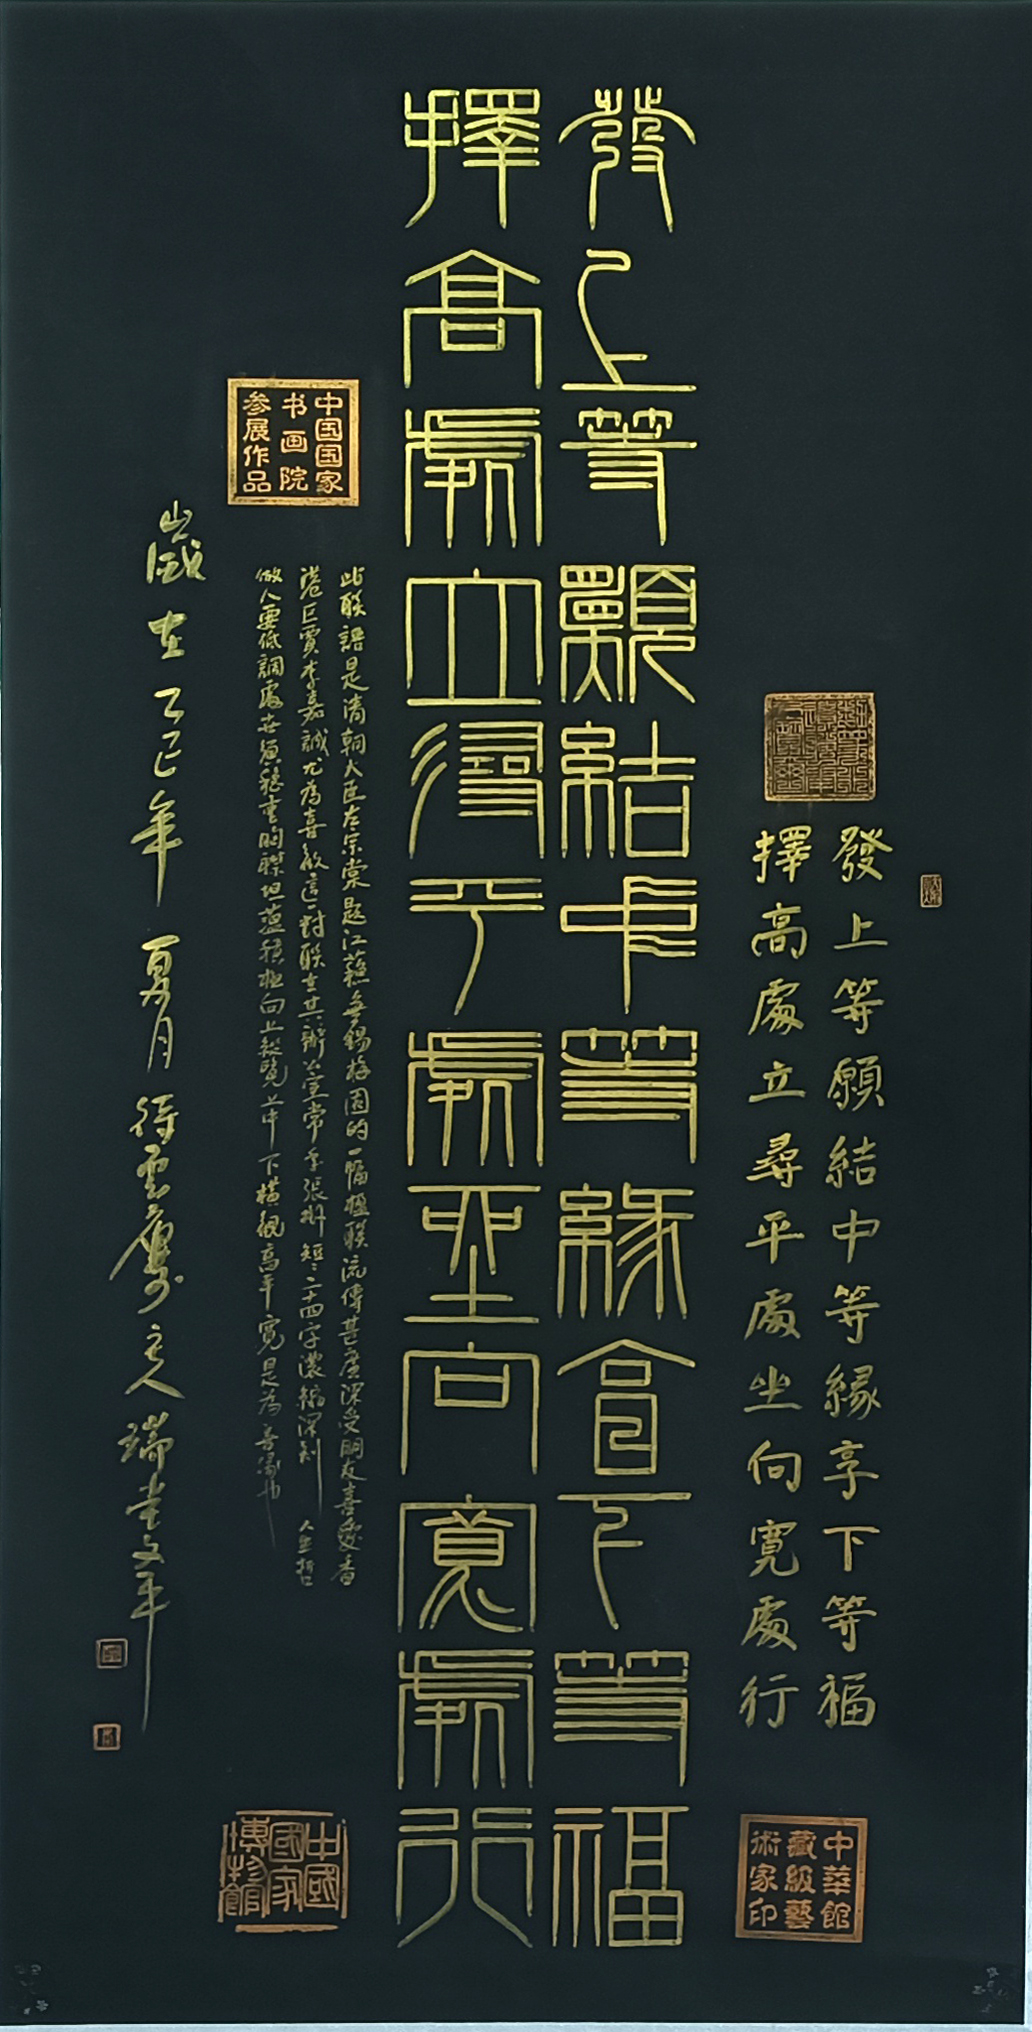 發上等願結中等緣享下等福
擇高處立尋平處坐向寬處行
發上等願結中等緣享下等福
擇高處立尋平處坐向寬處行
中國國家
书画院
参展作品
此联語是清朝大臣左宗棠題江蘇無錫梅園的一幅楹联流傳甚廣深受朋友喜愛香
港巨賈李嘉誠尤为喜歡這對联在其辦公室常年張掛短短二十四字濃縮深刻人生哲
做人要低調處世須穩重胸襟坦蕩積極向上縱覽上中下橫觀高平寬是为善緣也
歲在乙巳年夏月待雲廬主人瑞堂文平
中華館
藏級藝
術家印
中國
國家
博物館